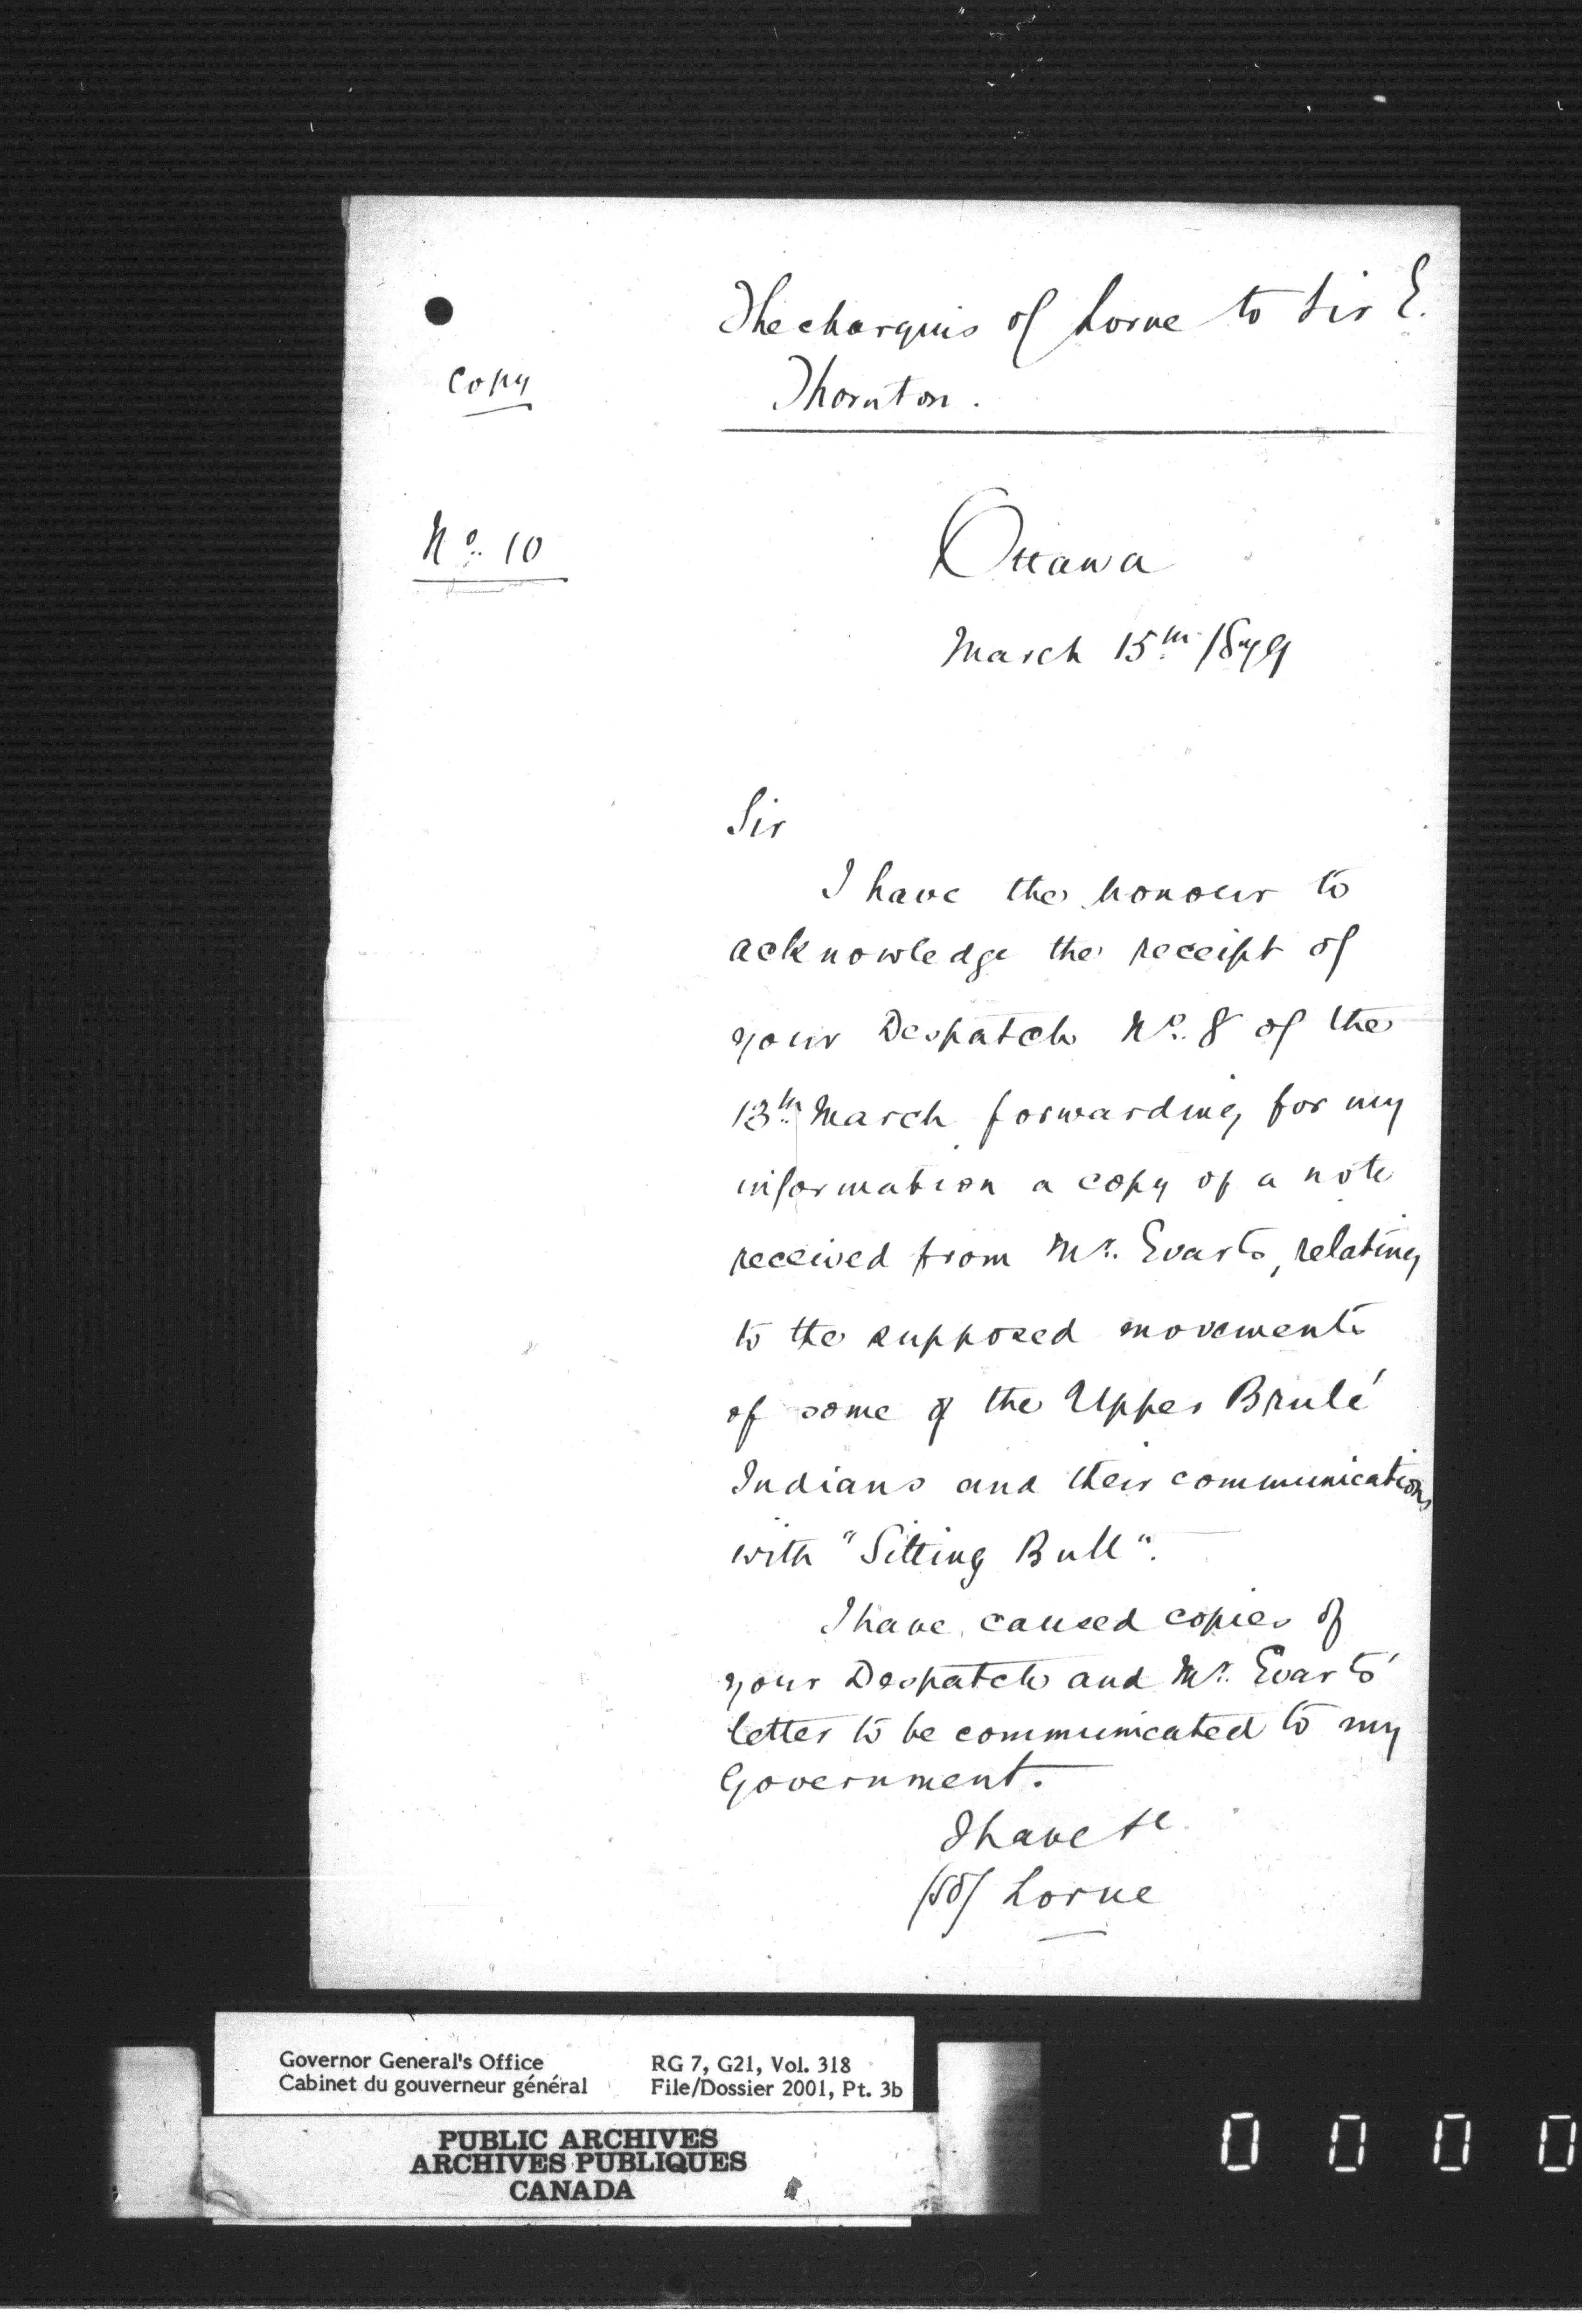 The Marquis of Lorne to Sir E.
Thornton.
Copy
No. 10
Ottawa
March 15th 1879
Sir
I have the honour to
acknowledge the receipt of
your Despatch No. 8 of the
13th March forwarding for my
information a copy of a note
received from Mr. Evarts, relating
to the supposed movements
of some of the Upper Brulé
Indians and their communications
with "Sitting Bull".
I have caused copies of
your Despatch and Mr. Evarts'
letter to be communicated to my
Government.
I have &c
(Sd) Lorne
Governor General's Office RG 7, G21, Vol. 318
Cabinet du gouverneur général File/Dossier 2001, Pt. 3b
PUBLIC ARCHIVES
ARCHIVES PUBLIQUES
CANADA
0 0 0 0